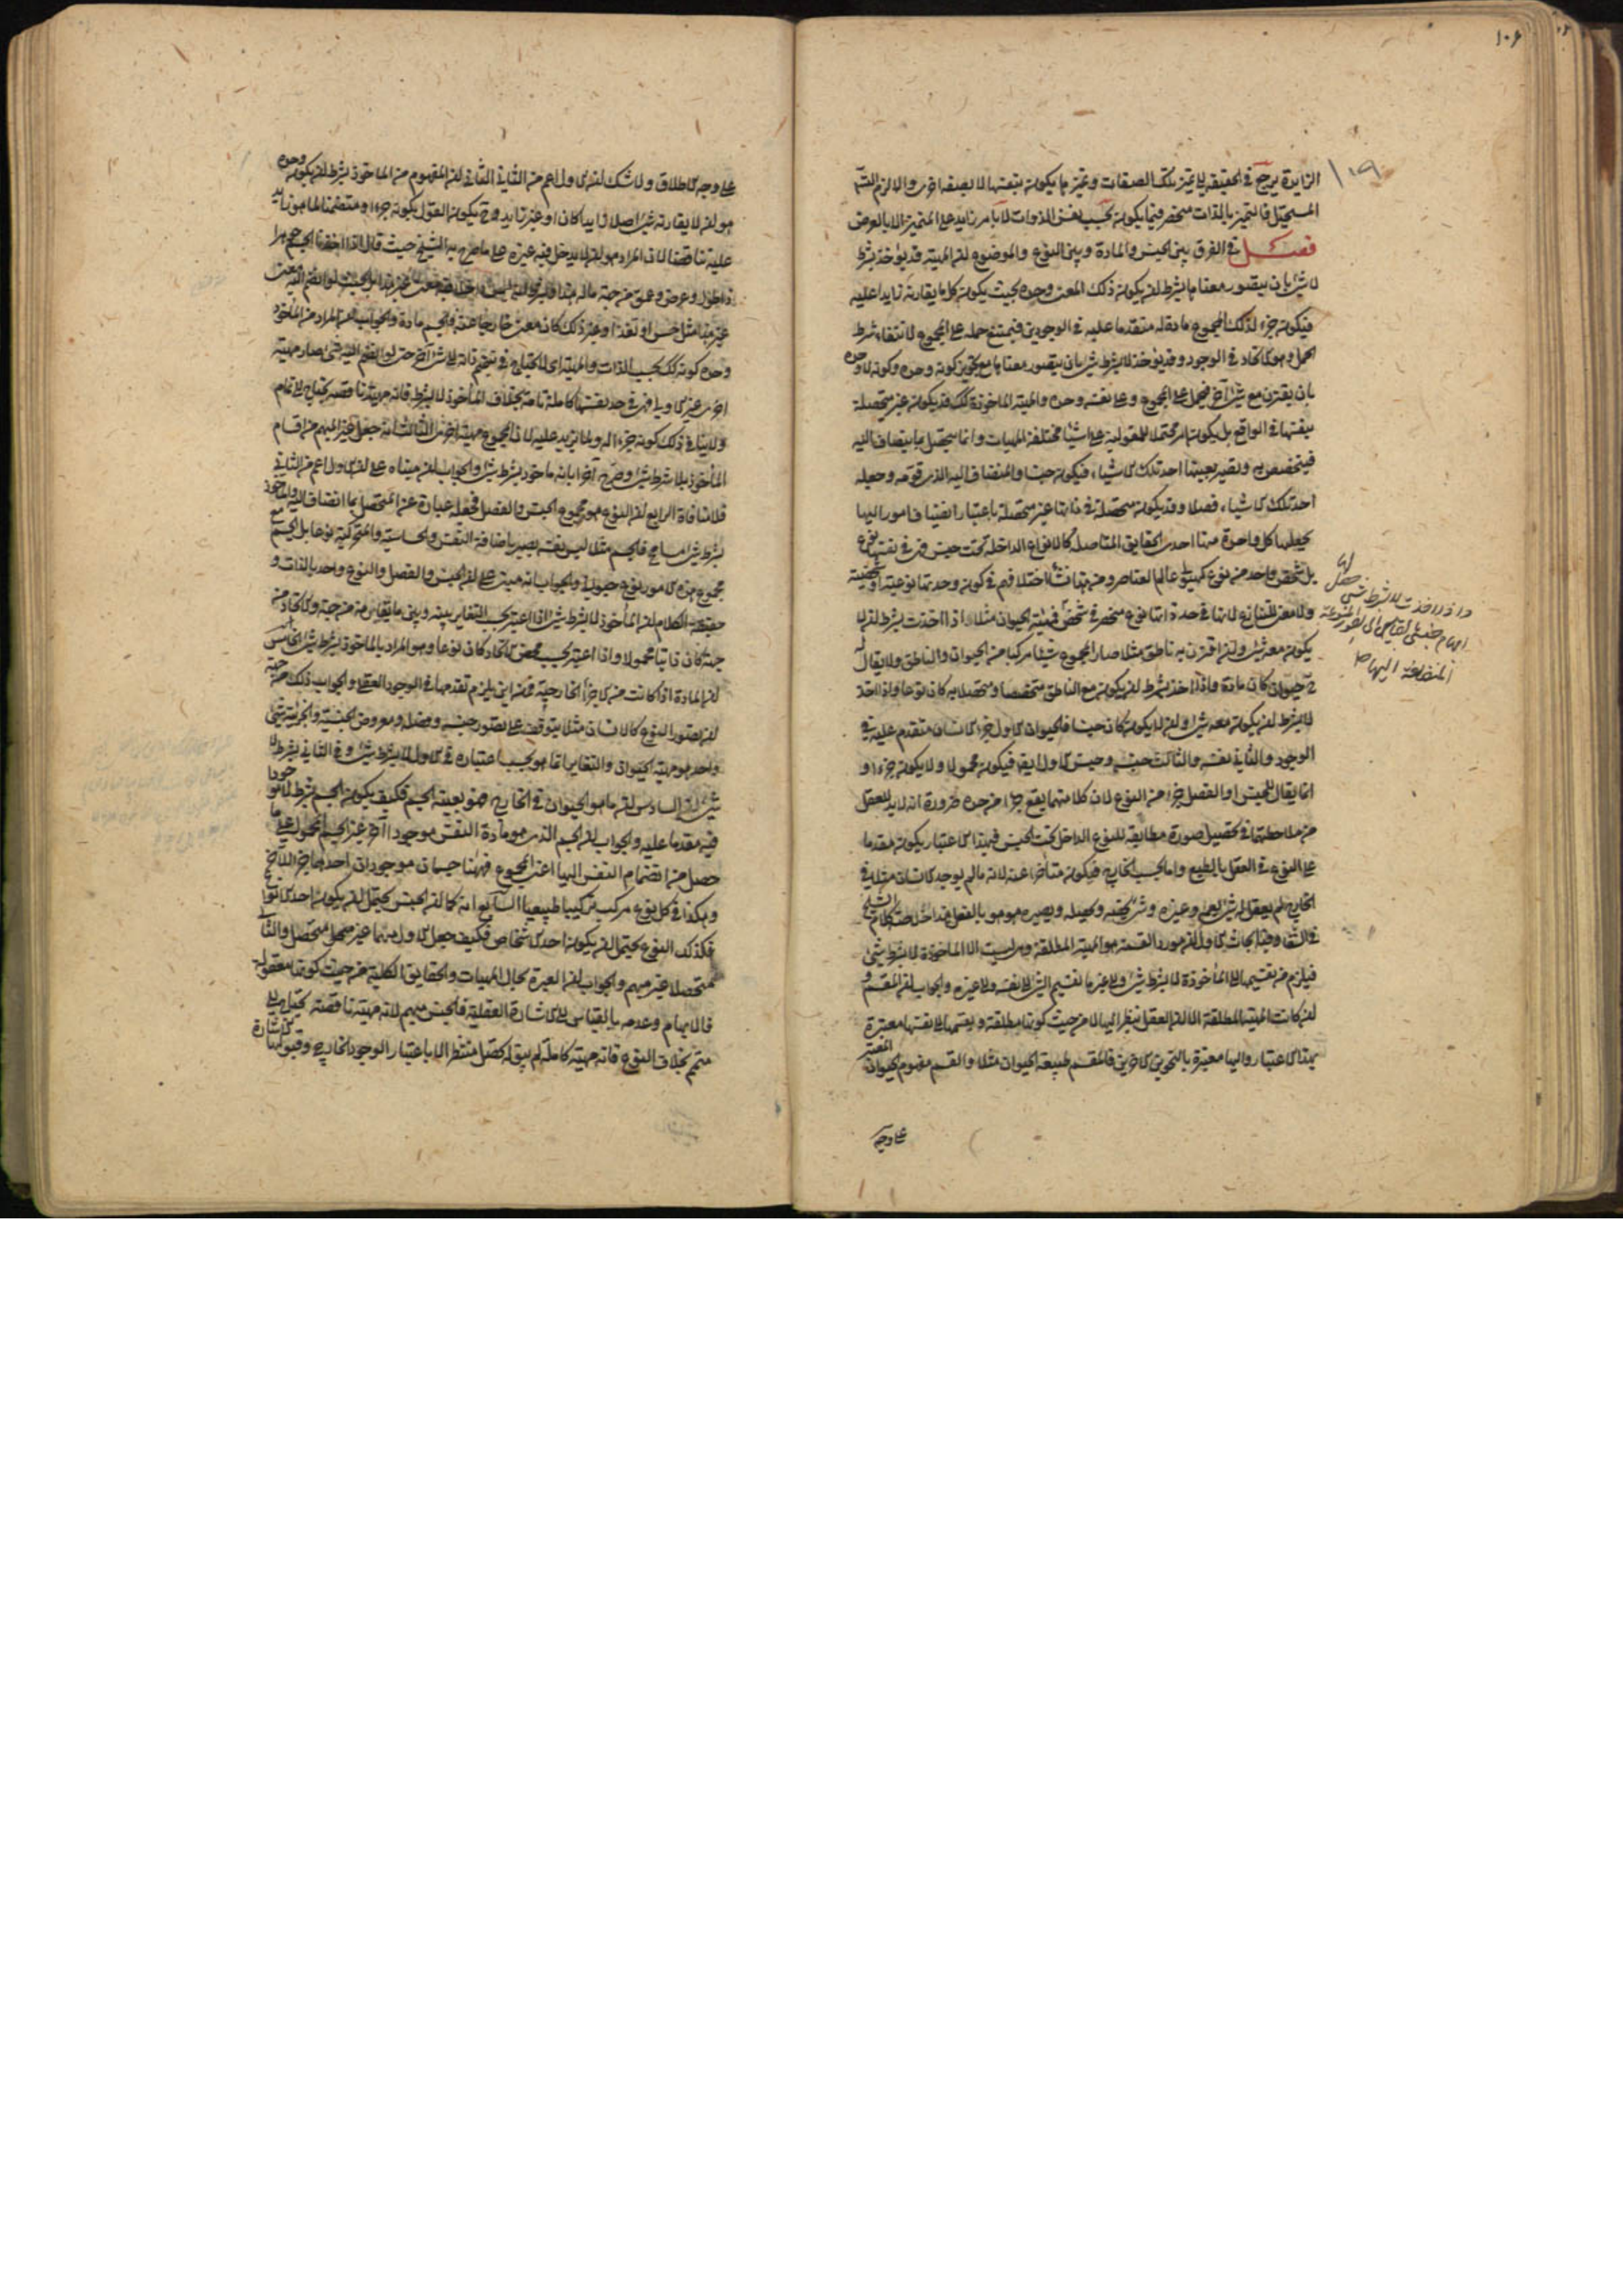 ١٠٦
الزايدة يرجع في الحقيقة الى تميز تلك الصفات وتميز ما يكون بنفسها لا بصفة اخرى والا لزم التسـ
المستحيل فالتميز بالذات منحصر فيما يكون بحسب نفس الذوات لا بامر زايد على المتميز الا بالعرض
فصل في الفرق بين الجنس والمادة وبين النوع والموضوع ان المهية قد يؤخذ بشرط
لا شئ بان يتصور معناها بشرط ان يكون ذلك المعنى وحده بحيث يكون كل ما يقارنه زايدا عليه
فيكون جزء لذلك المجموع مادة له متقدما عليه في الوجودين فيمتنع حمله على المجموع لانتفاء شرط
الحمل وهو الاتحاد في الوجود وقد يؤخذ لا بشرط شئ بان يتصور معناها مع تجويز كونه وحده وكونه لا وحده
بان يقترن مع شئ آخر فيحمل على المجموع وعلى نفسه وحده والمهية الماخوذة كذلك قد يكون غير متحصلة
بنفسها في الواقع بل يكون امرا محتملا للمقولية على اشياء مختلفة المهيات وانما يتحصل بما ينضاف اليه
فيتخصص به ويصير بعينها احد تلك الاشياء فيكون جنسا والمنضاف اليه الذي قومه وجعله
احد تلك الاشياء فصلا وقد يكون متحصلة في ذاتها غير متحصلة باعتبار انضياف امور اليها
يجعلها كل واحدة منها احدى الحقايق المتاصلة كالانواع الداخلة تحت جنس فهى في نفسها نوع
بل شخص واحد من نوع كهيولى عالم العناصر ومن هذا نشأ اختلافهم في كون وحدتها نوعية او شخصية
ولا معنى للتنازع لانها في حدة اتها نوع منحصر في شخص فمهية الحيوان مثلا اذا اخذت بشرط ان لا
يكون معه شئ وان اقترن به ناطق مثلا صار المجموع شيئا مركبا من الحيوان والناطق ولا يقال له
ح حيوان كان مادة واذا اخذ بشرط ان يكون مع الناطق متخصصا ومتحصلا به كان نوعا واذا اخذ
لا بشرط ان يكون معه شئ او ان لا يكون كان جنسا فالحيوان الاول جزء الانسان متقدم عليه في
الوجود والثاني نفسه والثالث جنسه وجنس الاول ايضا فيكون محمولا ولا يكون جزءا و
انما يقال للجنس او الفصل جزء من النوع لان كلا منهما يقع جزءا من حده ضرورة انه لابد للعقل
من ملاحظتهما في تحصيل صورة مطابقة للنوع الداخل تحت الجنس فبهذا الاعتبار يكون مقدما
على النوع في العقل بالطبع واما بحسب الخارج فيكون متاخرا عنه لانه ما لم يوجد الانسان مثلا في
الخارج لم يعقل له شئ يعمه وغيره وشئ يخصه ويحصله ويصيره هو هو بالفعل هذا ما لخص كلام الشيخ
في الشفا وفيه ابحاث الاول ان مورد القسمة هو المهية المطلقة وليست الا الماخوذة لا بشرط شئ
فيلزم من تقسيمها الى الماخوذة لا بشرط شئ والى غيرها تقسيم الشئ الى نفسه والى غيره والجواب ان المقسم و
ان كانت المهية المطلقة الا ان العقل ينظر اليها لا من حيث كونها مطلقة ويقسمها الى نفسها معتبرة
بهذا الاعتبار واليها معتبرة بالنحوين الاخرين فالمقسم طبيعة الحيوان مثلا والقسم مفهوم الحيوان المعتبر
على وجه
على وجه الاطلاق ولا شك ان الاول اعم من الثاني الثاني ان المفهوم من الماخوذ بشرط ان يكون وحده
هو ان لا يقارنه شئ اصلا زايدا كان او غير زايد وح يكون القول بكونه جزءا ومتضمنا لما هو زايد
عليه تناقضا لان المراد هو ان لا يدخل فيه غيره على ما صرح به الشيخ حيث قال اذا اخذنا الجسم جوهرا
ذا طول وعرض وعمق من جهة ما له هذا
غير هذا مثل حس او تغذ او غير ذلك كان معنى خارجا عنه فالجسم مادة والجواب ان المراد من الماخوذ
وحده كونه كذلك بحسب الذات والمهية اى لا يحتاج في تتميم ذاته الى شئ آخر حتى لو انضم اليه شئ صار مهية
اخرى غير الاولى اذ هي في حد نفسها كاملة تامة بخلاف الماخوذ لا بشرط فانه مهية ناقصة يحتاج الى تمام
ولا ينافي ذلك كونه جزء اله ولما يزيد عليه لان المجموع مهية اخرى الثالث انه جعل غير المبهم من اقسام
الماخوذ بلا شرط شئ وصرح آخرا بانه ماخوذ بشرط شئ والجواب ان مبناه على ان الاول اعم من الثاني
فلا منافاة الرابع ان النوع هو مجموع الجنس والفصل فجعله عبارة عن المتحصل بما انضاف اليه والماخوذ
بشرط شئ تسامح فالجسم مثلا ليس نفسه يصير باضافة النفس والحساسية والمتحركية نوعا بل الجسم مع
مجموع هذه الامور نوع حيواني والجواب انه مبنى على ان الجنس والفصل والنوع واحد بالذات و
حقيقة الكلام ان الماخوذ لا بشرط شئ اذا اعتبر بحسب التغاير بينه وبين ما يقارنه من جهة والاتحاد من
جهة كان ذاتيا محمولا واذا اعتبر بحسب محض الاتحاد كان نوعا وهو المراد بالماخوذ بشرط شئ الخامس
ان المادة اذا كانت من الاجزاء الخارجية فمن اين يلزم تقدمها في الوجود العقلى والجواب ذلك من جهة
ان تصور النوع كالانسان مثلا يتوقف على تصور جنسه وفصله ومعروض الجنسية والجزئية شئ
واحد هو مهية الحيوان والتغاير انما هو بحسب اعتباره في الاول لا بشرط شئ وفي الثاني بشرط لا
شئ السادس ان ما هو الحيوان في الخارج هو بعينه الجسم فكيف يكون الجسم بشرط لا موجودا
فيه مقدما عليه والجواب ان الجسم الذى هو مادة النفس موجود آخر غير الجسم المحمول على ما
حصل من انضمام النفس اليها اعنى المجموع فههنا جسمان موجودان احدهما جزء الآخر
وهكذا في كل نوع مركب تركيبا طبيعيا السابع انه كما ان الجنس يحتمل ان يكون احد الانواع
فكذلك النوع يحتمل ان يكون احد الاشخاص فكيف جعل الاول مبهما غير متحصل والثاني
متحصلا غير مبهم والجواب ان العبرة بحال المهيات والحقايق الكلية من حيث كونها معقولة
فالابهام وعدمه بالقياس الى الاشارة العقلية فالجنس مبهم لانه مهية ناقصة يحتاج الى
متمم بخلاف النوع فانه مهية كاملة لم يبق له تحصل منتظر الا باعتبار الوجود الخارجى وقبول الاشارة